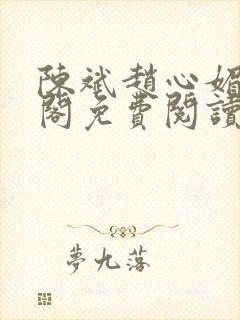 陳斌趙心媚
閣免費閱讀
夢九落